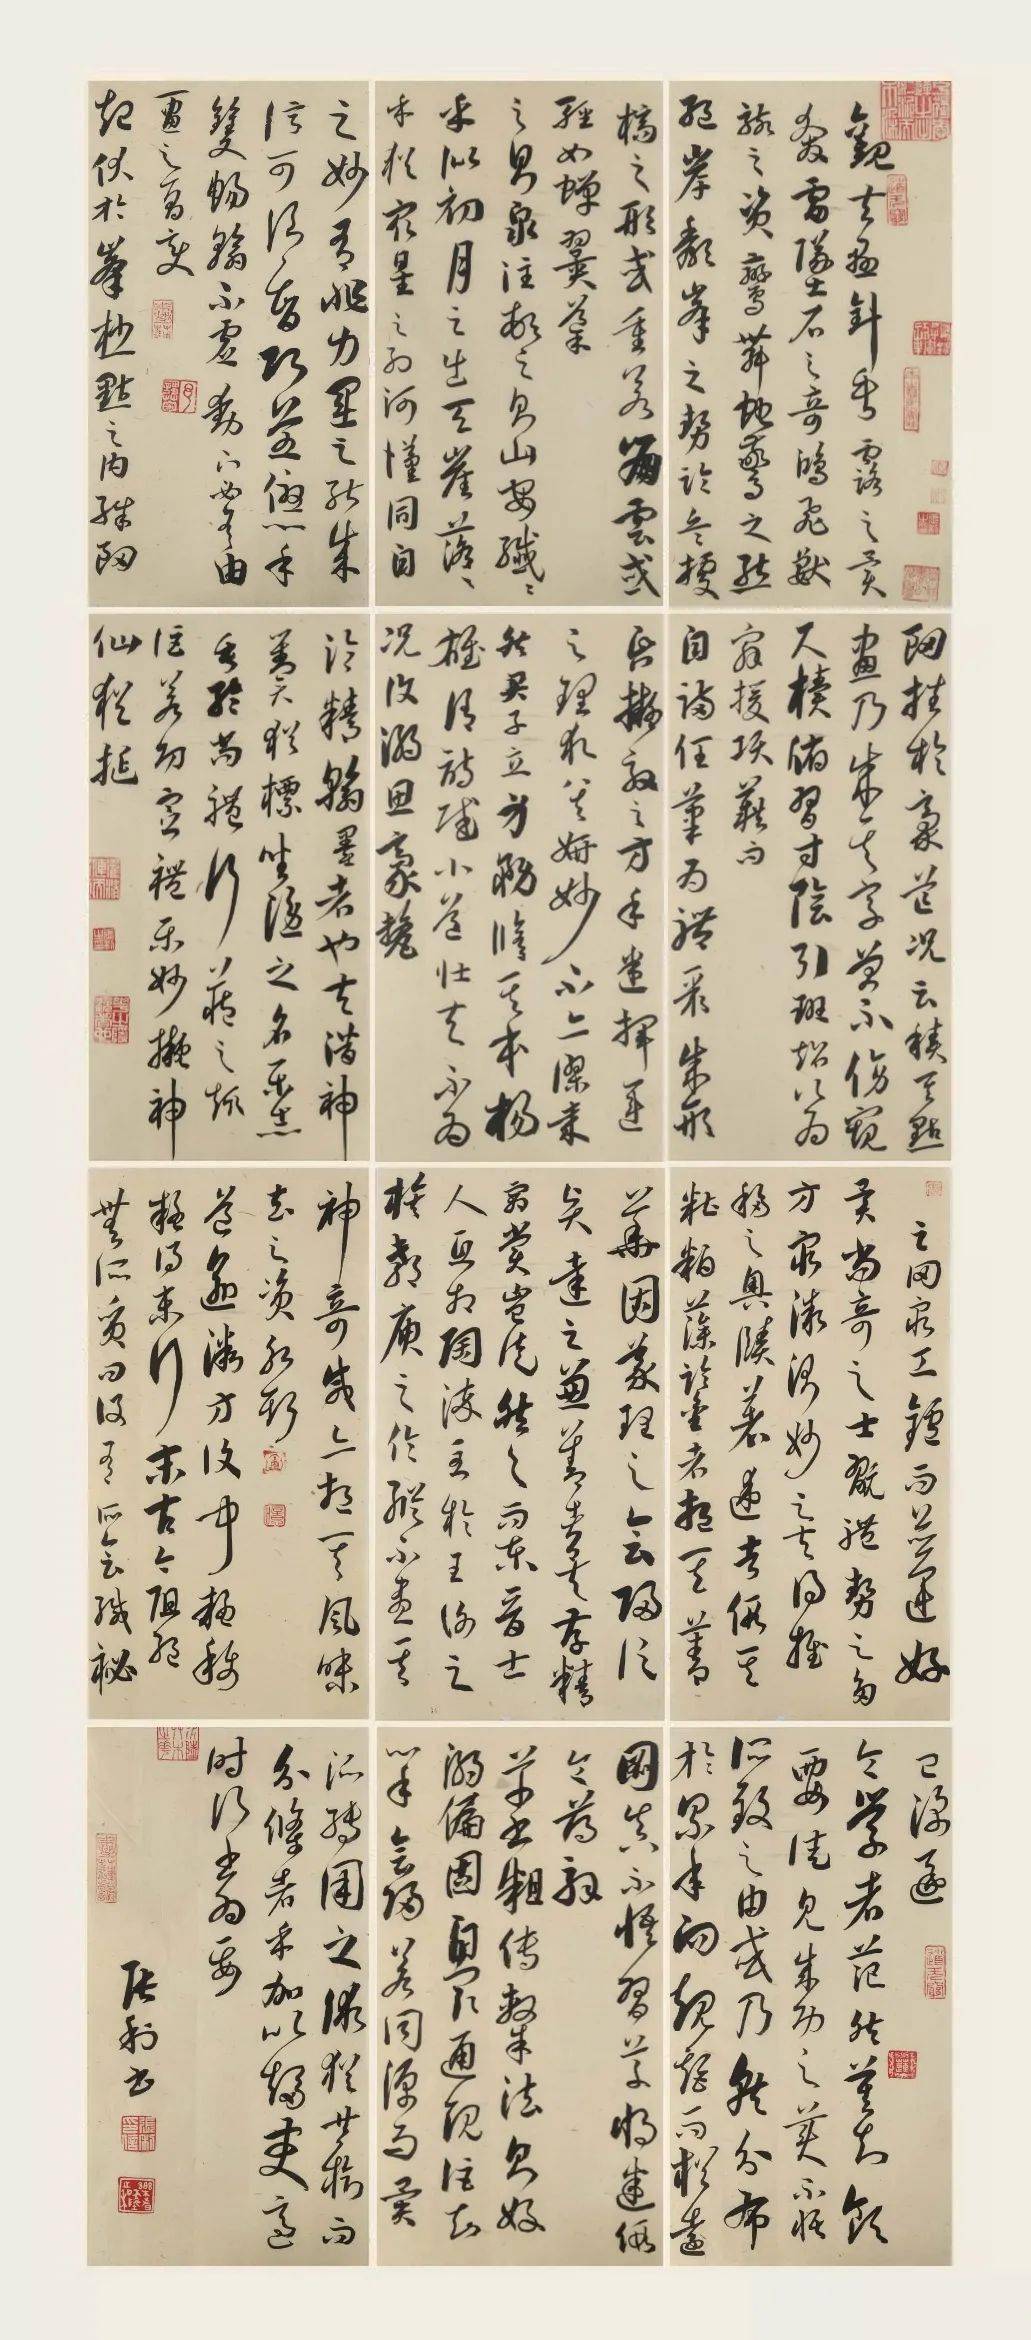 觀夫懸針垂露之異
奔雷墜石之奇鴻飛獸
駭之資鸞舞蛇驚之態
絕岸頹峯之勢臨危據
槁之形或重若崩雲或
輕如蟬翼導
之則泉注頓之則山安纖〻
乎似初月之出天崖落〻
乎猶衆星之列河漢同自
之妙有非力運之能成
信可謂智巧兼優心手
雙暢翰不虛動下必有由
一畫之間變
起伏於峯杪點之內殊衄
衄挫於豪芒況云積其點
畫乃成其字曾不傍窺
尺犢俯習寸陰引班超以爲
辭援項籍而
自滿任筆爲體聚成形
昏擬效之方手迷揮運
之理求其妍妙不亦謬哉
然君子立身務修其本楊
雄謂詩賦小道壯夫不爲
況復溺思豪釐
淪精翰墨者也夫潛神
對奕猶標坐隱之名樂志
垂綸尚體行藏之趣
詎若功宣禮樂妙擬神
仙猶埏
之罔窮工鑪而並運好
異尚奇之士翫體勢之多
方窮微測妙之夫得推
移之奧賾著述者假其
糟粕藻鑒者挹其菁
華固義理之會歸信
賢達之兼善者矣存精
寓賞豈徒然與而東晉士
人互相陶淬至於王謝之
族郗庾之倫縱不盡其
神奇咸亦挹其風味
去之滋永斯
道愈微方復聞疑稱
疑得末行末古今阻絕
無所質問設有所會緘祕
已深遂
令學者茫然莫知領
要徒見成功之美不悟
所致之由或乃就分布
於累年向規矩而猶遠
圖真不悟習草將迷假
令薄解
草書粗傳隸法則好
溺偏固自閡通規詎知
心手會歸若同源而異
派轉用之術猶共樹而
分條者乎加以趨變適
時行書爲要
張利書